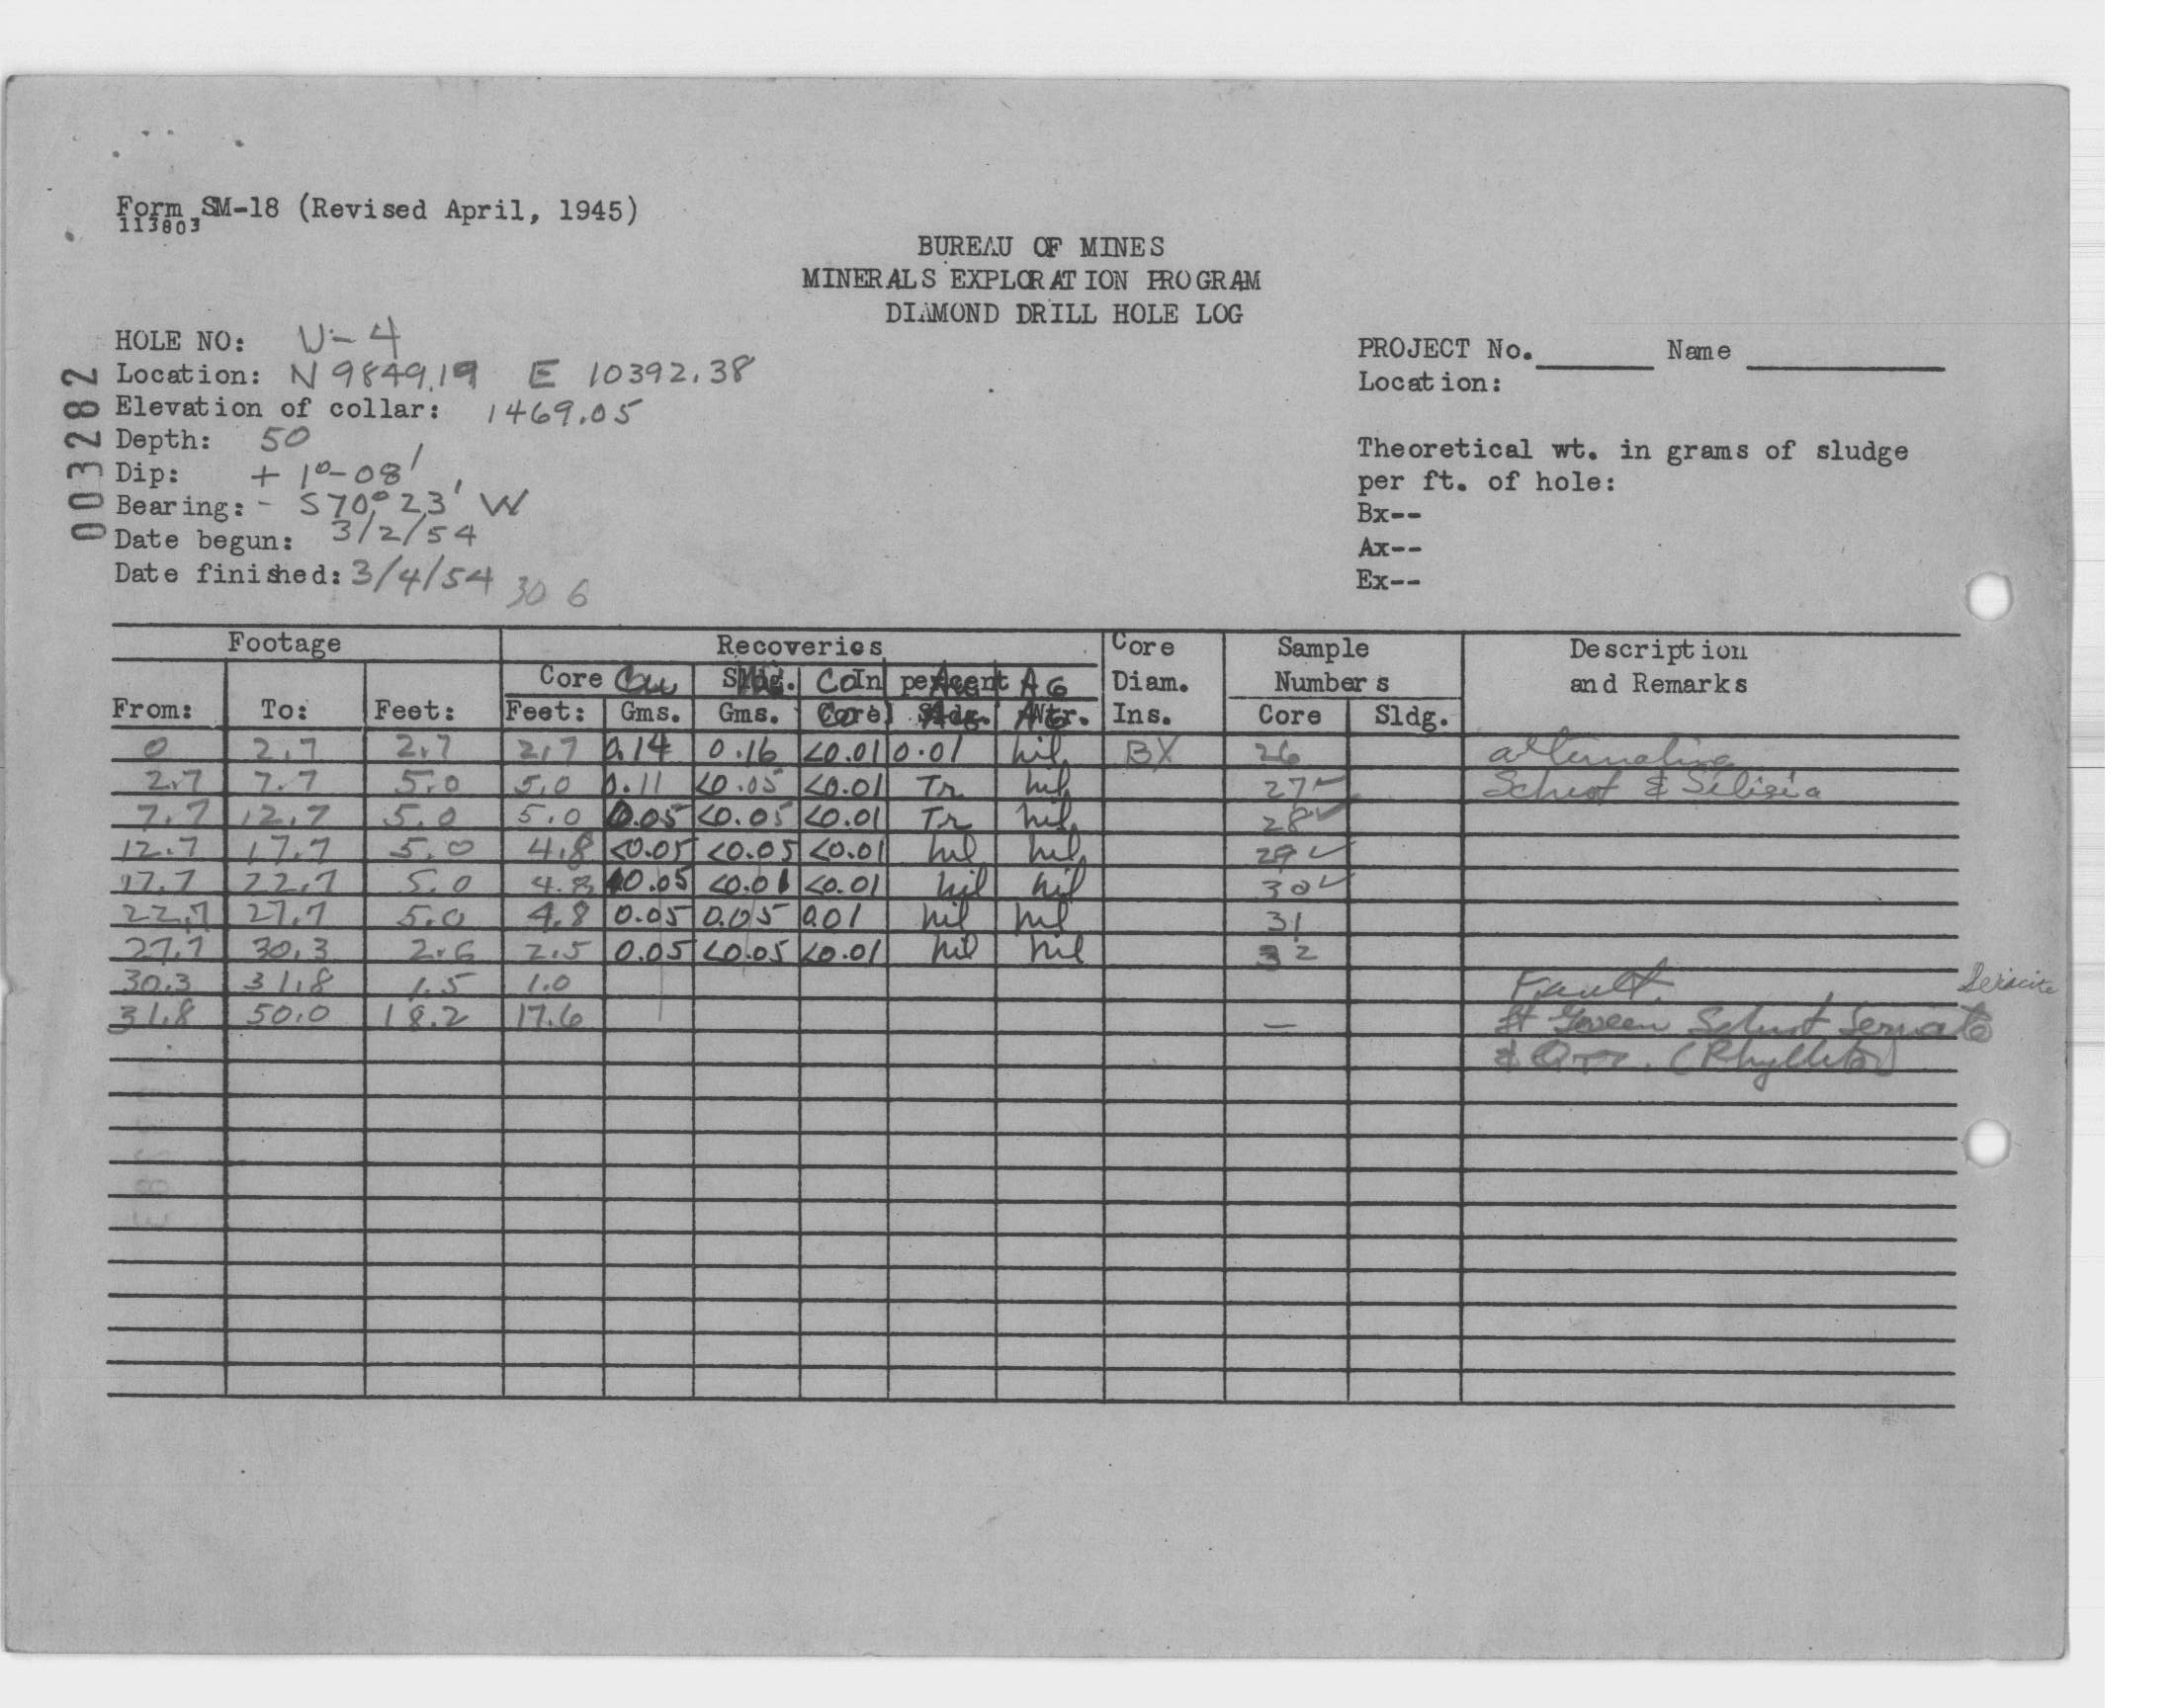 Form SM-18 (Revised April, 1945)
113803
BUREAU OF MINES
MINERALS EXPLORATION PROGRAM
DIAMOND DRILL HOLE LOG
003282
HOLE NO: U-4
Location: N 9849.19 E 10392.38
Elevation of collar: 1469.05
Depth: 50
Dip: + 1°-08'
Bearing: - S70° 23' W
Date begun: 3/2/54
Date finished: 3/4/54 30 6
PROJECT No. Name
Location:
Theoretical wt. in grams of sludge
per ft. of hole:
Bx--
Ax--
Ex--
Footage Recoveries Core Sample Description
Core Cu Sldg. Co In percent AG Diam. Numbers and Remarks
From: To: Feet: Feet: Gms. Gms. Core Sldg. Wtr. Ins. Core Sldg.
0 2.7 2.7 2.7 0.14 0.16 <0.01 0.01 nil BX 26 alternating
2.7 7.7 5.0 5.0 0.11 <0.05 <0.01 Tr nil 27✓ Schist & Silicia
7.7 12.7 5.0 5.0 0.05 <0.05 <0.01 Tr nil 28✓
12.7 17.7 5.0 4.8 <0.05 <0.05 <0.01 nil nil 29✓
17.7 22.7 5.0 4.8 0.05 <0.01 <0.01 nil nil 30✓
22.7 27.7 5.0 4.8 0.05 0.05 0.01 nil nil 31
27.7 30.3 2.6 2.5 0.05 <0.05 <0.01 nil nil 32
30.3 31.8 1.5 1.0 Fault. Sericite
31.8 50.0 18.2 17.6 — Lt Green Schist